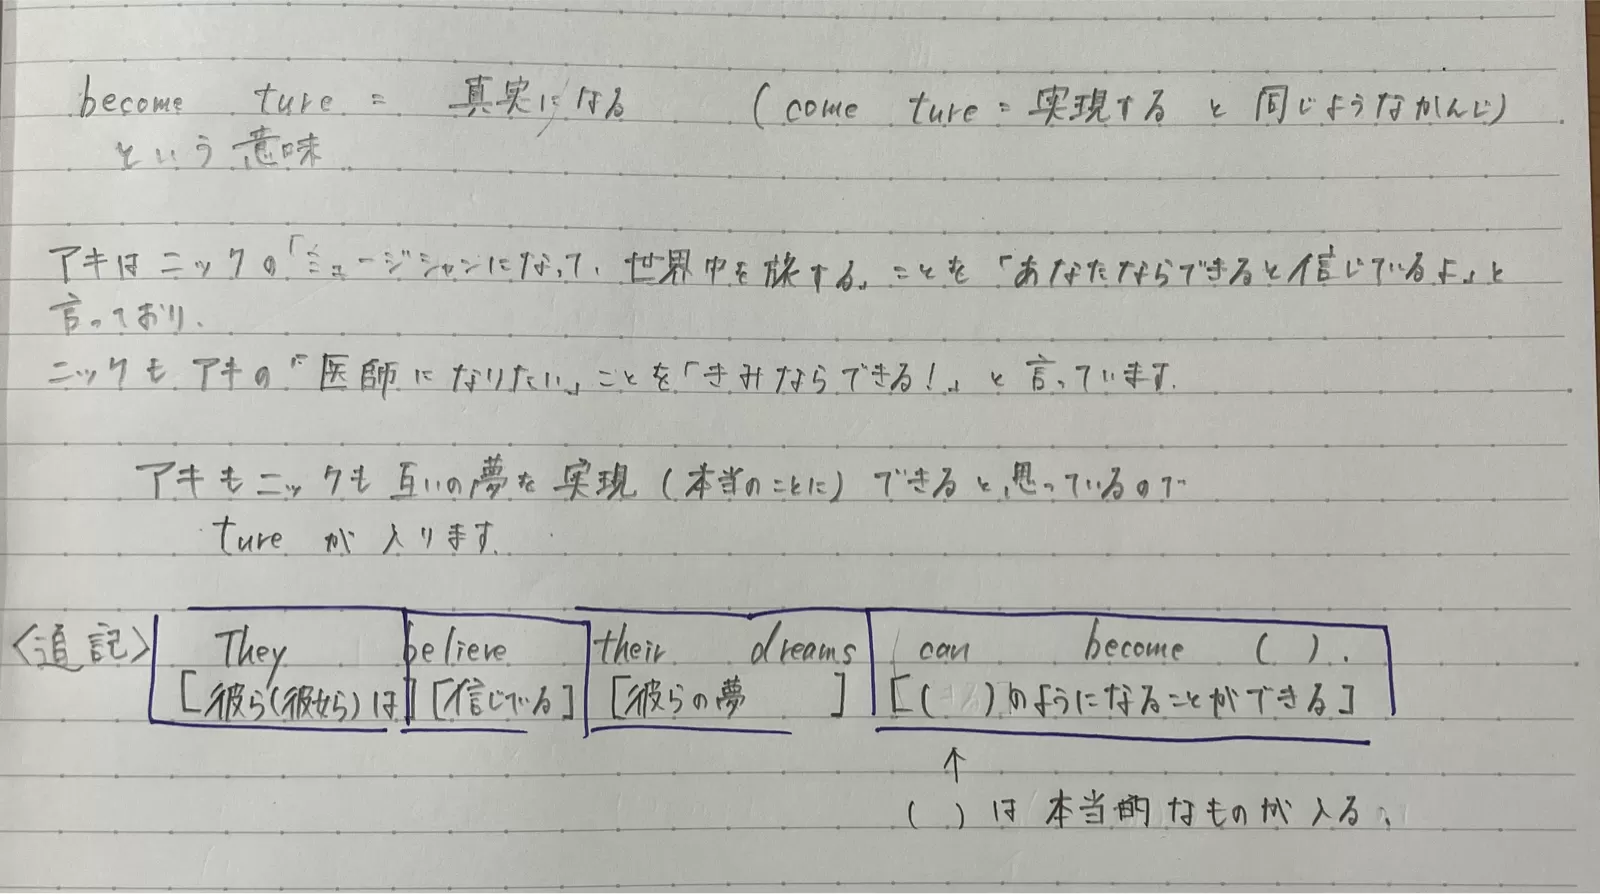 become ture = 真実になる (come ture = 実現する と 同じようなかんじ)
という意味
アキはニックの「ミュージシャンになって、世界中を旅する」ことを「あなたならできると信じているよ」と
言っており、
ニックもアキの「医師になりたい」ことを「きみならできる!」と言っています。
アキもニックも互いの夢を実現(本当のことに)できると思っているので
ture が入ります。
<追記> They believe their dreams can become ( ).
[彼ら(彼女ら)は] [信じている] [彼らの夢 ] [( )のようになることができる]
↑
( )は本当的なものが入る、